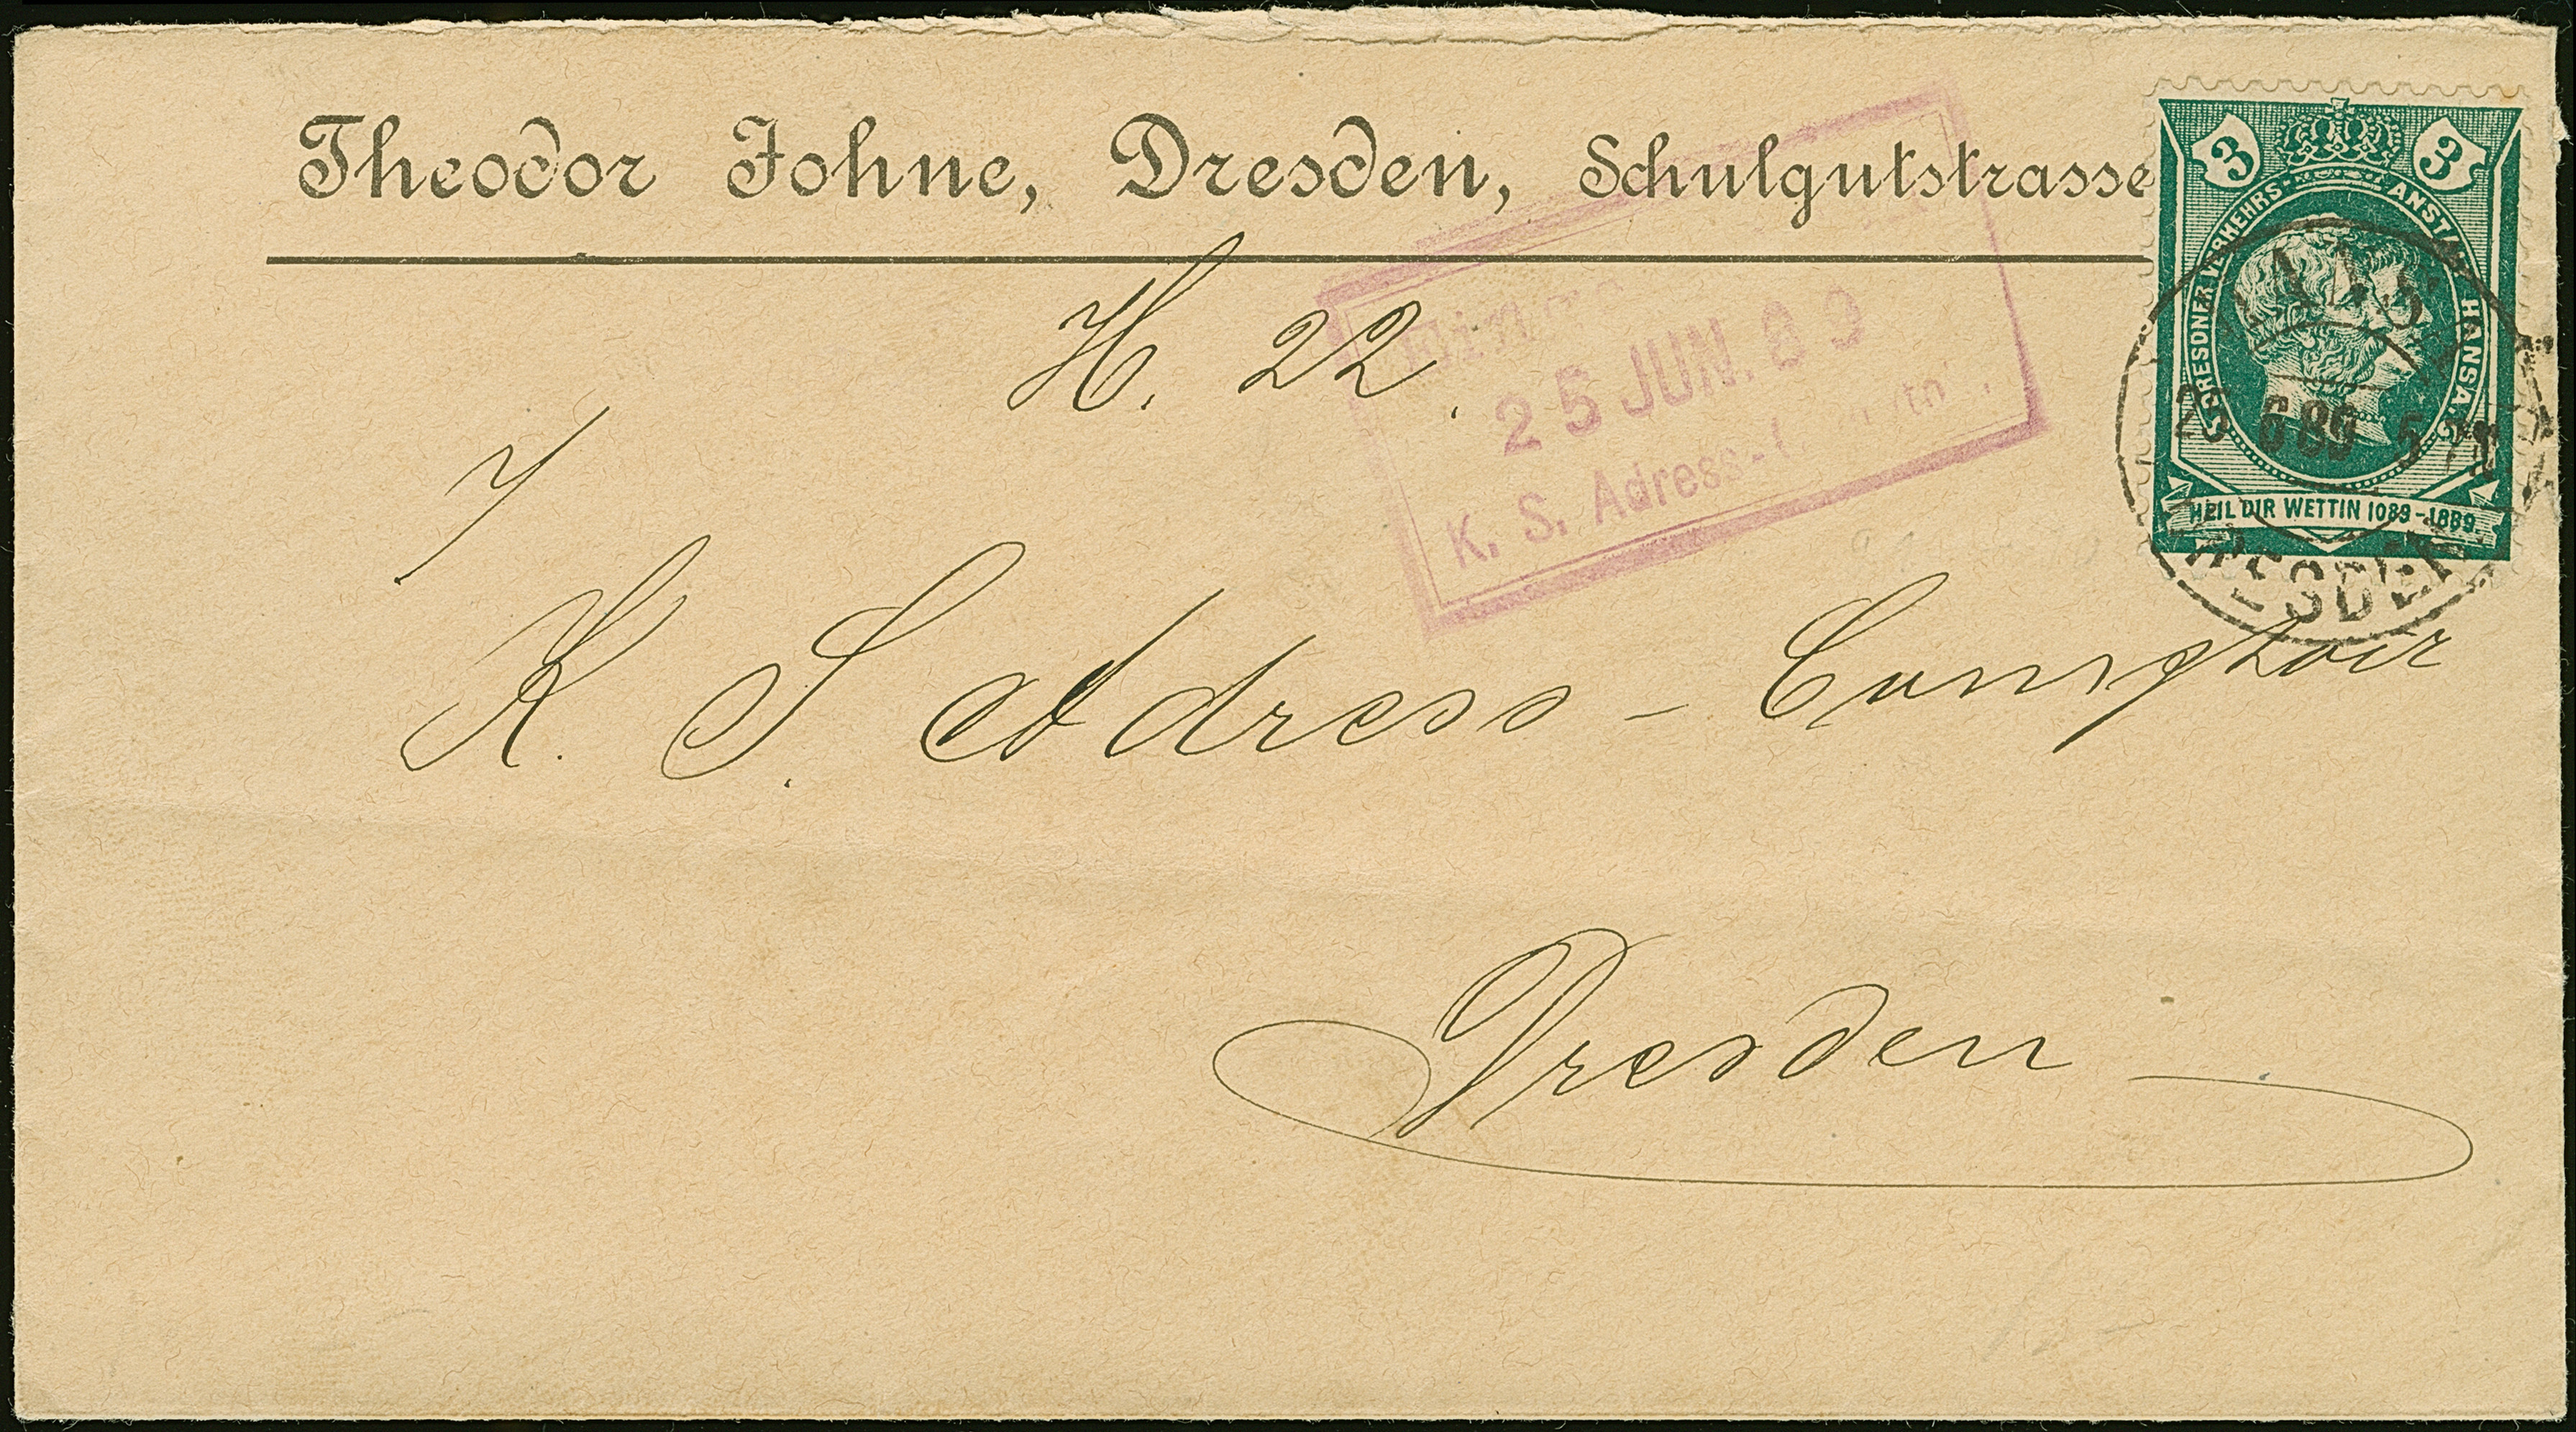 Theodor Johne, Dresden, Schulgutstrasse
3 3
DRESDNER VERKEHRS-ANSTALT HANSA
HEIL DIR WETTIN 1089-1889
HANSA
25 6 89 5
DRESDEN
25 JUN. 89
K. S. Adress-
H. 22.
K. S. Adress-Comptoir
Dresden